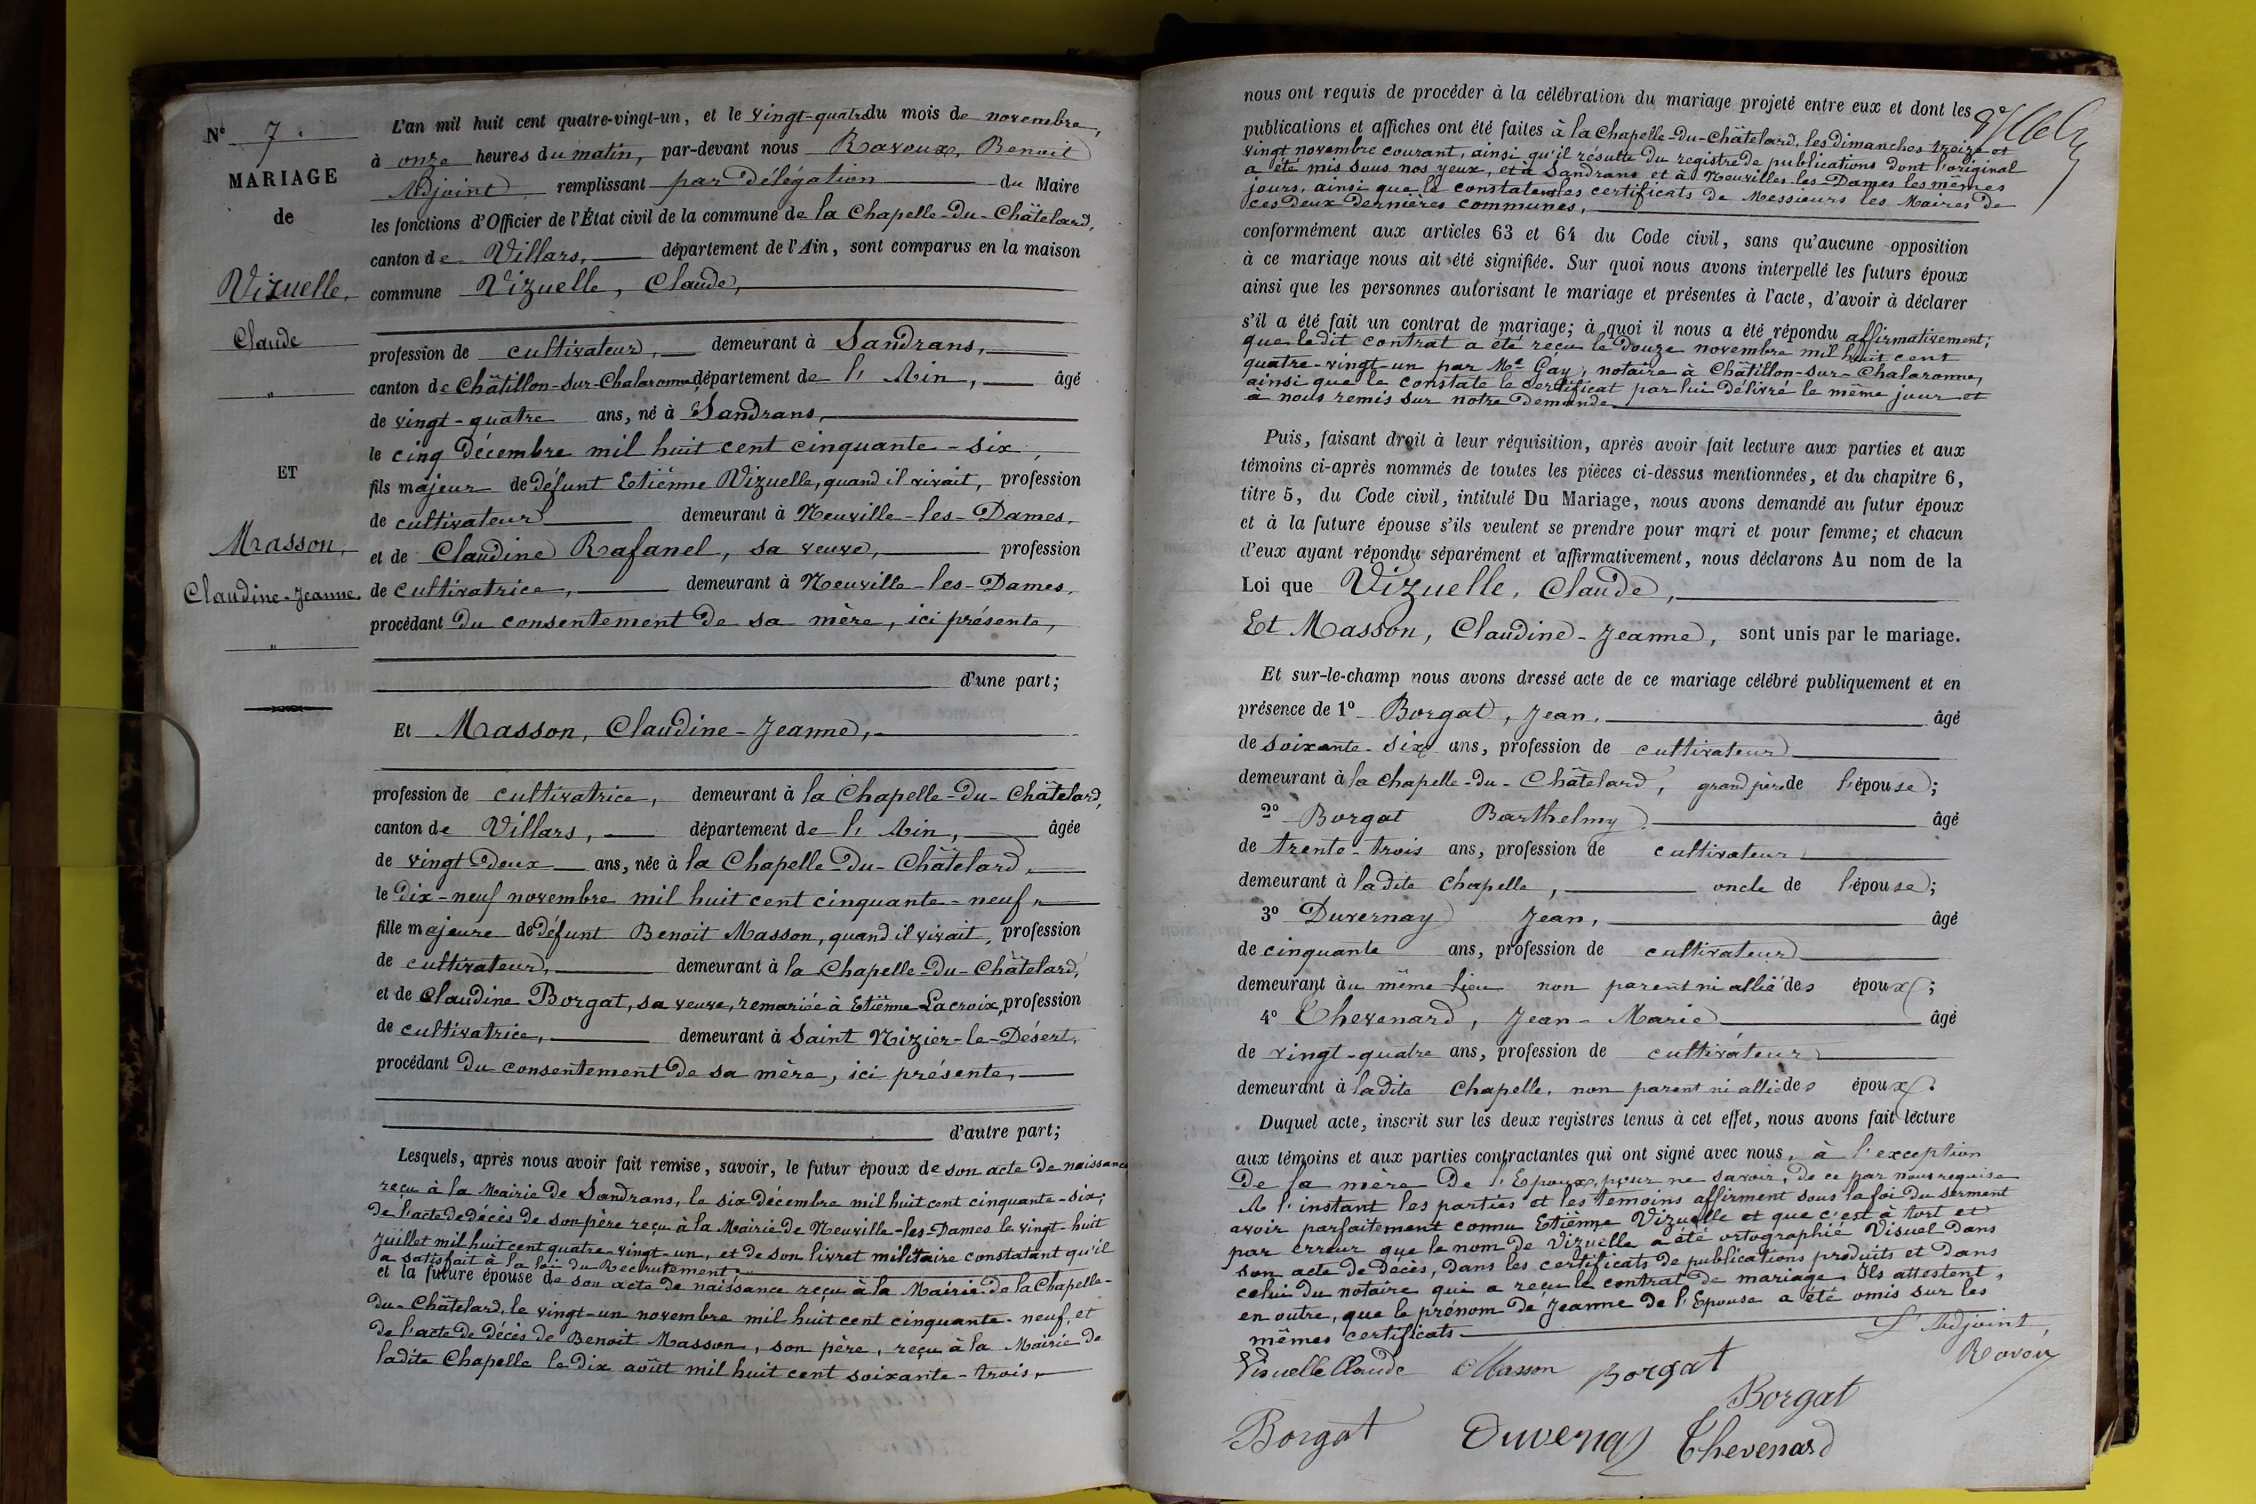 N° 7.
MARIAGE
de
Vizuelle,
Claude
"
ET
Masson,
Claudine-Jeanne.
"
L'an mil huit cent quatre-vingt-un, et le vingt-quatre du mois de novembre,
à onze heures du matin, par-devant nous Ravoux, Benoit
Adjoint remplissant par Délégation du Maire
les fonctions d'Officier de l'État civil de la commune de la Chapelle-Du-Châtelard,
canton de Villars, département de l'Ain, sont comparus en la maison
commune Vizuelle, Claude,
profession de cultivateur, demeurant à Sandrans,
canton de Châtillon-sur-Chalaronne, département de l'Ain, âgé
de vingt-quatre ans, né à Sandrans,
le cinq Décembre mil huit cent cinquante-six,
fils majeur de défunt Etiênne Vizuelle, quand il vivait, profession
de cultivateur demeurant à Neuville-les-Dames,
et de Claudine Rafanel, sa veuve, profession
de cultivatrice, demeurant à Neuville-les-Dames,
procédant du consentement de sa mère, ici présente,
d'une part;
Et Masson, Claudine-Jeanne,
profession de cultivatrice, demeurant à la Chapelle-Du-Châtelard,
canton de Villars, département de l'Ain, âgée
de vingt-Deux ans, née à la Chapelle-Du-Châtelard,
le Dix-neuf novembre mil huit cent cinquante-neuf,
fille majeure de défunt Benoit Masson, quand il vivait, profession
de cultivateur, demeurant à la Chapelle-Du-Châtelard,
et de Claudine Borgat, sa veuve, remariée à Etiênne Lacroix, profession
de cultivatrice, demeurant à Saint Nizier-le-Désert,
procédant du consentement de sa mère, ici présente,
d'autre part;
Lesquels, après nous avoir fait remise, savoir, le futur époux de son acte de naissance
reçu à la Mairie de Sandrans, le six Décembre mil huit cent cinquante-six;
de l'acte de décès de son père reçu à la Mairie de Neuville-les-Dames le vingt-huit
juillet mil huit cent quatre-vingt-un, et de son livret militaire constatant qu'il
a satisfait à la loi du Recrutement.
et la future épouse de son acte de naissance reçu à la Mairie de la Chapelle-
du-Châtelard, le vingt-un novembre mil huit cent cinquante-neuf, et
de l'acte de décès de Benoit Masson, son père, reçu à la Mairie de
ladite Chapelle le dix août mil huit cent soixante-trois,
nous ont requis de procéder à la célébration du mariage projeté entre eux et dont les
publications et affiches ont été faites à la Chapelle-du-Châtelard, les dimanches treize et
vingt novembre courant, ainsi qu'il résulte du registre de publications dont l'original
a été mis sous nos yeux, et à Sandrans et à Neuville-les-Dames les mêmes
jours, ainsi que le constatent les certificats de Messieurs les Maires de
ces deux dernières communes,
conformément aux articles 63 et 64 du Code civil, sans qu'aucune opposition
à ce mariage nous ait été signifiée. Sur quoi nous avons interpellé les futurs époux
ainsi que les personnes autorisant le mariage et présentes à l'acte, d'avoir à déclarer
s'il a été fait un contrat de mariage; à quoi il nous a été répondu affirmativement;
que ledit contrat a été reçu le Douze novembre mil huit cent
quatre-vingt-un par Me Gay, notaire à Châtillon-sur-Chalaronne,
ainsi que le constate le certificat par lui délivré le même jour et
à nous remis sur notre demande
Puis, faisant droit à leur réquisition, après avoir fait lecture aux parties et aux
témoins ci-après nommés de toutes les pièces ci-dessus mentionnées, et du chapitre 6,
titre 5, du Code civil, intitulé Du Mariage, nous avons demandé au futur époux
et à la future épouse s'ils veulent se prendre pour mari et pour femme; et chacun
d'eux ayant répondu séparément et affirmativement, nous déclarons Au nom de la
Loi que Vizuelle, Claude,
Et Masson, Claudine-Jeanne, sont unis par le mariage.
Et sur-le-champ nous avons dressé acte de ce mariage célébré publiquement et en
présence de 1° Borgat, Jean, âgé
de soixante-six ans, profession de cultivateur
demeurant à la Chapelle-du-Châtelard, grand père de l'épouse;
2° Borgat Barthelmy âgé
de trente-trois ans, profession de cultivateur
demeurant à ladite Chapelle, oncle de l'épouse;
3° Duvernay Jean, âgé
de cinquante ans, profession de cultivateur
demeurant au même lieu non parent ni allié des époux;
4° Chevenard, Jean-Marie âgé
de vingt-quatre ans, profession de cultivateur
demeurant à ladite Chapelle, non parent ni allié des époux.
Duquel acte, inscrit sur les deux registres tenus à cet effet, nous avons fait lecture
aux témoins et aux parties contractantes qui ont signé avec nous, à l'exception
de la mère de l'Epoux, pour ne savoir, de ce par nous requise
A l'instant les parties et les témoins affirment sous la foi du serment
avoir parfaitement connu Etiênne Vizuelle et que c'est à tort et
par erreur que le nom de Vizuelle a été ortographié Visuel dans
son acte de décès, dans les certificats de publications produits et dans
celui du notaire qui a reçu le contrat de mariage. Ils attestent,
en outre, que le prénom de Jeanne de l'Epouse a été omis sur les
mêmes certificats
L'Adjoint,
Visuelle Claude Masson Borgat Ravoux
Borgat
Borgat Duvernay Chevenard